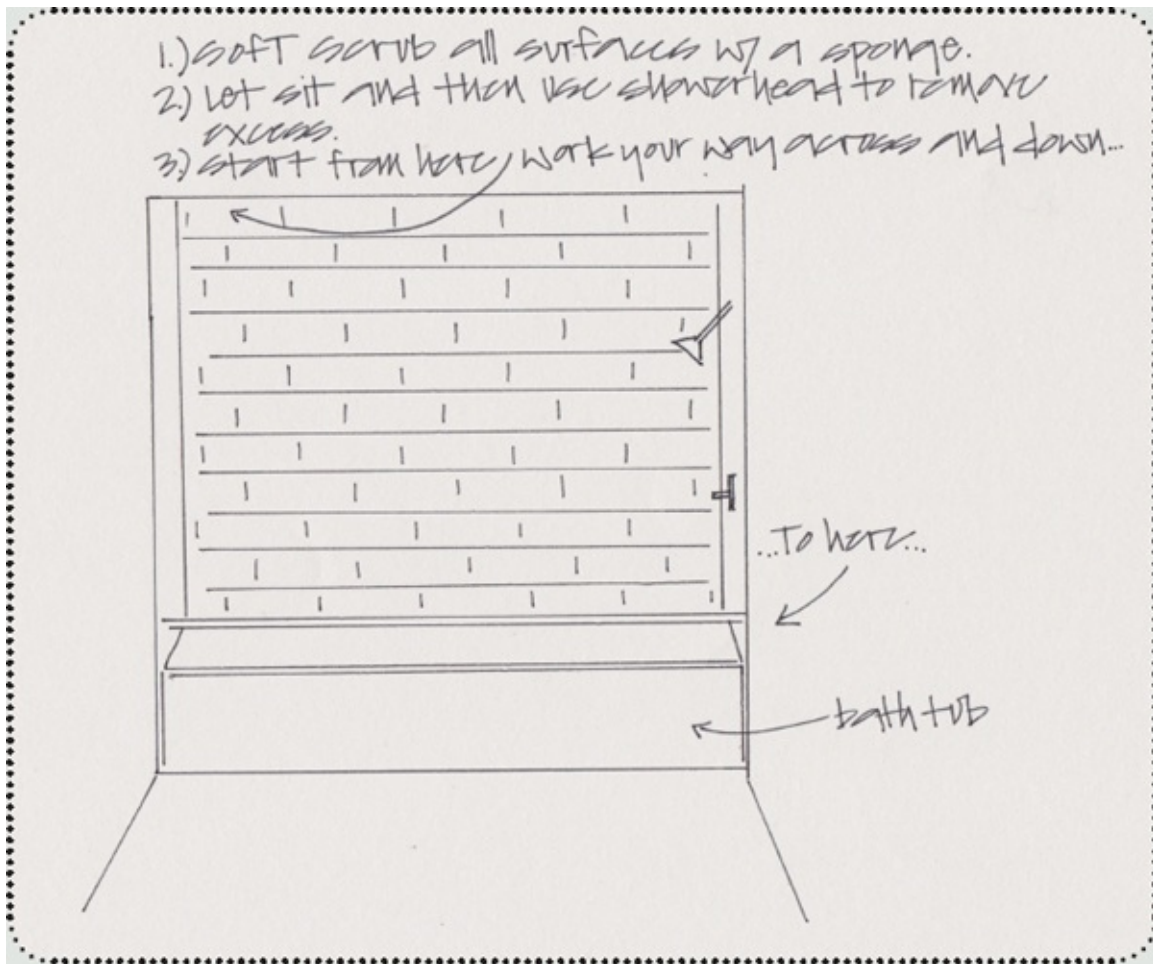 1.) Soft scrub all surfaces w/ a sponge.
2.) Let sit and then use showerhead to remove
excess.
3.) Start from here, work your way across and down...
...To here...
bath tub